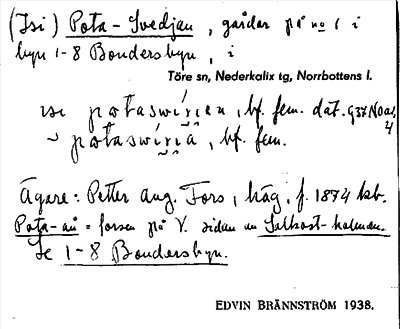 (Isi) Pota-Svedjan, gårdar på no 1 i
byn 1-8 Bondersbyn, i
Töre sn, Nederkalix tg, Norrbottens l.
bf. fem. dat.
bf. fem.
Ägare: Petter Aug. Fors, häg, f. 1874 hb.
Pota-ån = forsen på V. sidan an Salkost-halman.
Se 1-8 Bondersbyn.
EDVIN BRÄNNSTRÖM 1938.